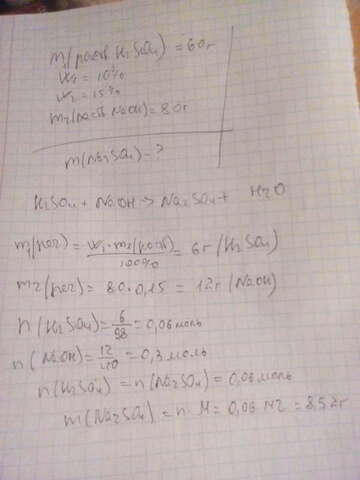 m₁(раств. H₂SO₄) = 60г
W₁ = 10%
W₂ = 15%
m₂(раств. NaOH) = 80г
m(Na₂SO₄) - ?
H₂SO₄ + NaOH → Na₂SO₄ + H₂O
= 6г (H₂SO₄)
100%
= 80 · 0,15 = 12г (NaOH)
n(H₂SO₄) = 6/98 = 0,06 моль
n(NaOH) = 12/40 = 0,3 моль
n(H₂SO₄) = n(Na₂SO₄) = 0,06 моль
m(Na₂SO₄) = n · M = 0,06 · 142 = 8,52г